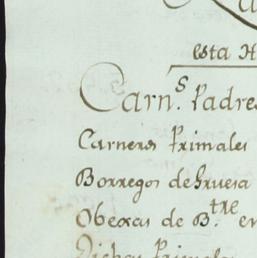 esta H
Carn.s Padres
Carneros Primales
Borregos de hruesa
Obexas de B.tre en
Dichos Primales